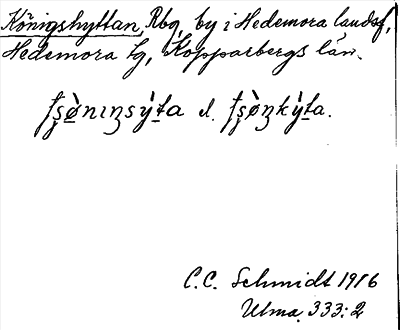 Königshyttan, Rbg, by i Hedemora landsf,
Hedemora tg, Kopparbergs län.
ʈʂø̀nɩŋsy̆̀ta el. ʈʂø̀ŋky̆̀ta.
C.C. Schmidt 1916
Ulma 333:2